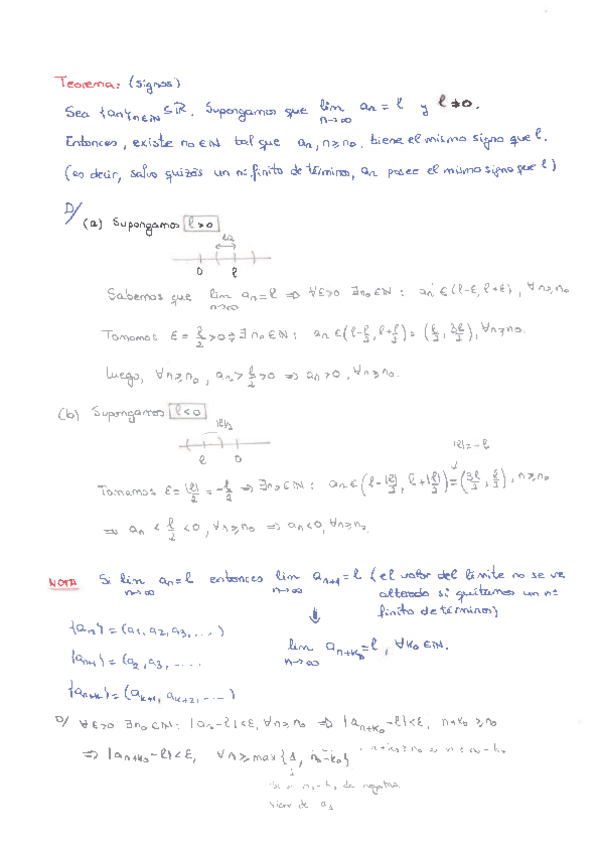 Teorema: (Signos)
Sea {an}n∈ℕ ⊆ ℝ. Supongamos que lim n→∞ an = l y l ≠ 0.
Entonces, existe n0 ∈ ℕ tal que an, n ≥ n0, tiene el mismo signo que l.
(es decir, salvo quizás un nº finito de términos, an posee el mismo signo que l)
D/
(a) Supongamos l > 0
l/2
0 l
Sabemos que lim n→∞ an = l ⇒ ∀ε>0 ∃n0∈ℕ : an ∈ (l-ε, l+ε), ∀n ≥ n0
Tomamos ε = l/2 > 0 ⇒ ∃n0∈ℕ : an ∈ (l - l/2, l + l/2) = (l/2, 3l/2), ∀n ≥ n0.
Luego, ∀n ≥ n0, an > l/2 > 0 ⇒ an > 0, ∀n ≥ n0.
(b) Supongamos l < 0
|l|/2
l 0
|l| = -l
Tomamos ε = |l|/2 = -l/2 ⇒ ∃n0∈ℕ : an ∈ (l - |l|/2, l + |l|/2) = (3l/2, l/2), n ≥ n0
⇒ an < l/2 < 0, ∀n ≥ n0 ⇒ an < 0, ∀n ≥ n0.
NOTA Si lim n→∞ an = l entonces lim n→∞ an+1 = l (el valor del límite no se ve
alterado si quitamos un nº
finito de términos)
{an} = (a1, a2, a3, ...)
lim n→∞ an+k0 = l, ∀k0 ∈ ℕ.
{an+1} = (a2, a3, ....
{an+k} = (ak+1, ak+2, ...)
D/ ∀ε>0 ∃n0∈ℕ : |an - l| < ε, ∀n ≥ n0 ⇒ |an+k0 - l| < ε, n+k0 ≥ n0
⇒ |an+k0 - l| < ε, ∀n ≥ max{1, n0-k0} n+k0 ≥ n0 ⇒ n ≥ n0-k0
n0-k0 da negativo